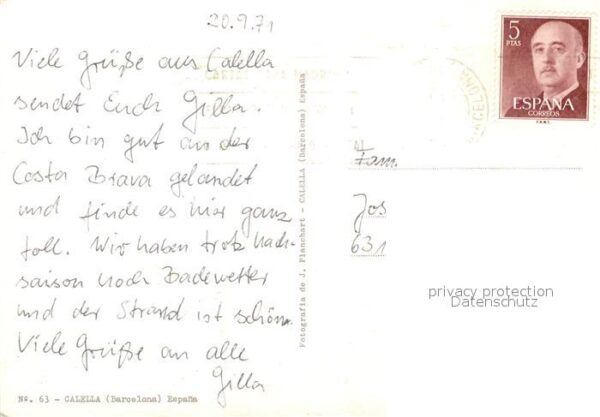 20.9.71
Viele Grüße aus Calella
sendet Euch Gilla.
Ich bin gut an der
Costa Brava gelandet
und finde es hier ganz
toll. Wir haben trotz Nach-
saison noch Badewetter
und der Strand ist schön.
Viele Grüße an alle
Gilla
No. 63 - CALELLA (Barcelona) España
Fotografía de J. Planchart - CALELLA (Barcelona) España
5
PTAS
ESPAÑA
CORREOS
F.N.M.T.
BARCELONA
Fam.
Jos
631
privacy protection
Datenschutz